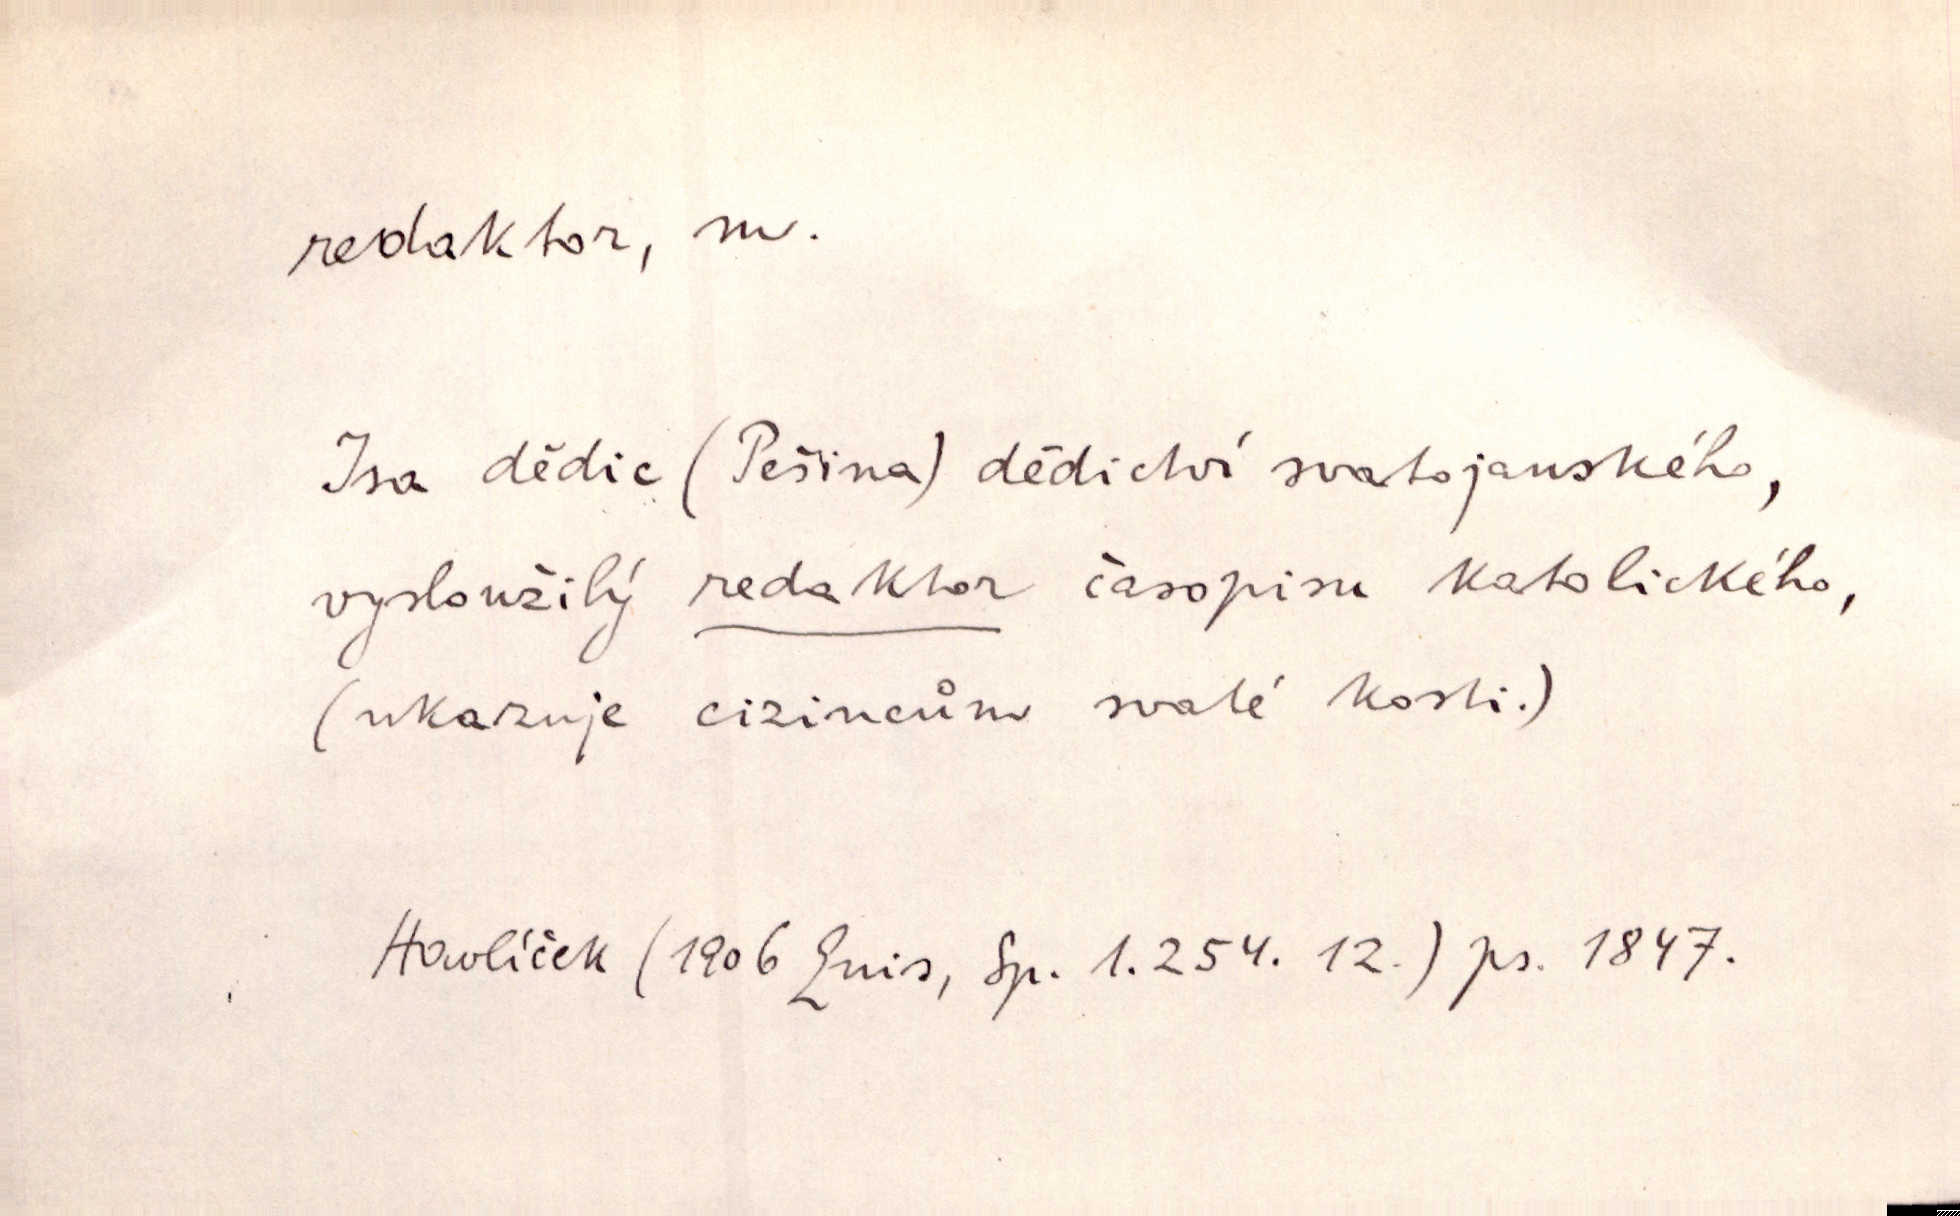 redaktor, m.
Jsa dědic (Pešina) dědictví svatojanského,
vysloužilý redaktor časopisu katolického,
(ukazuje cizincům svaté kosti.)
Havlíček (1906 Quis, Sp. 1.254. 12.) ps. 1847.